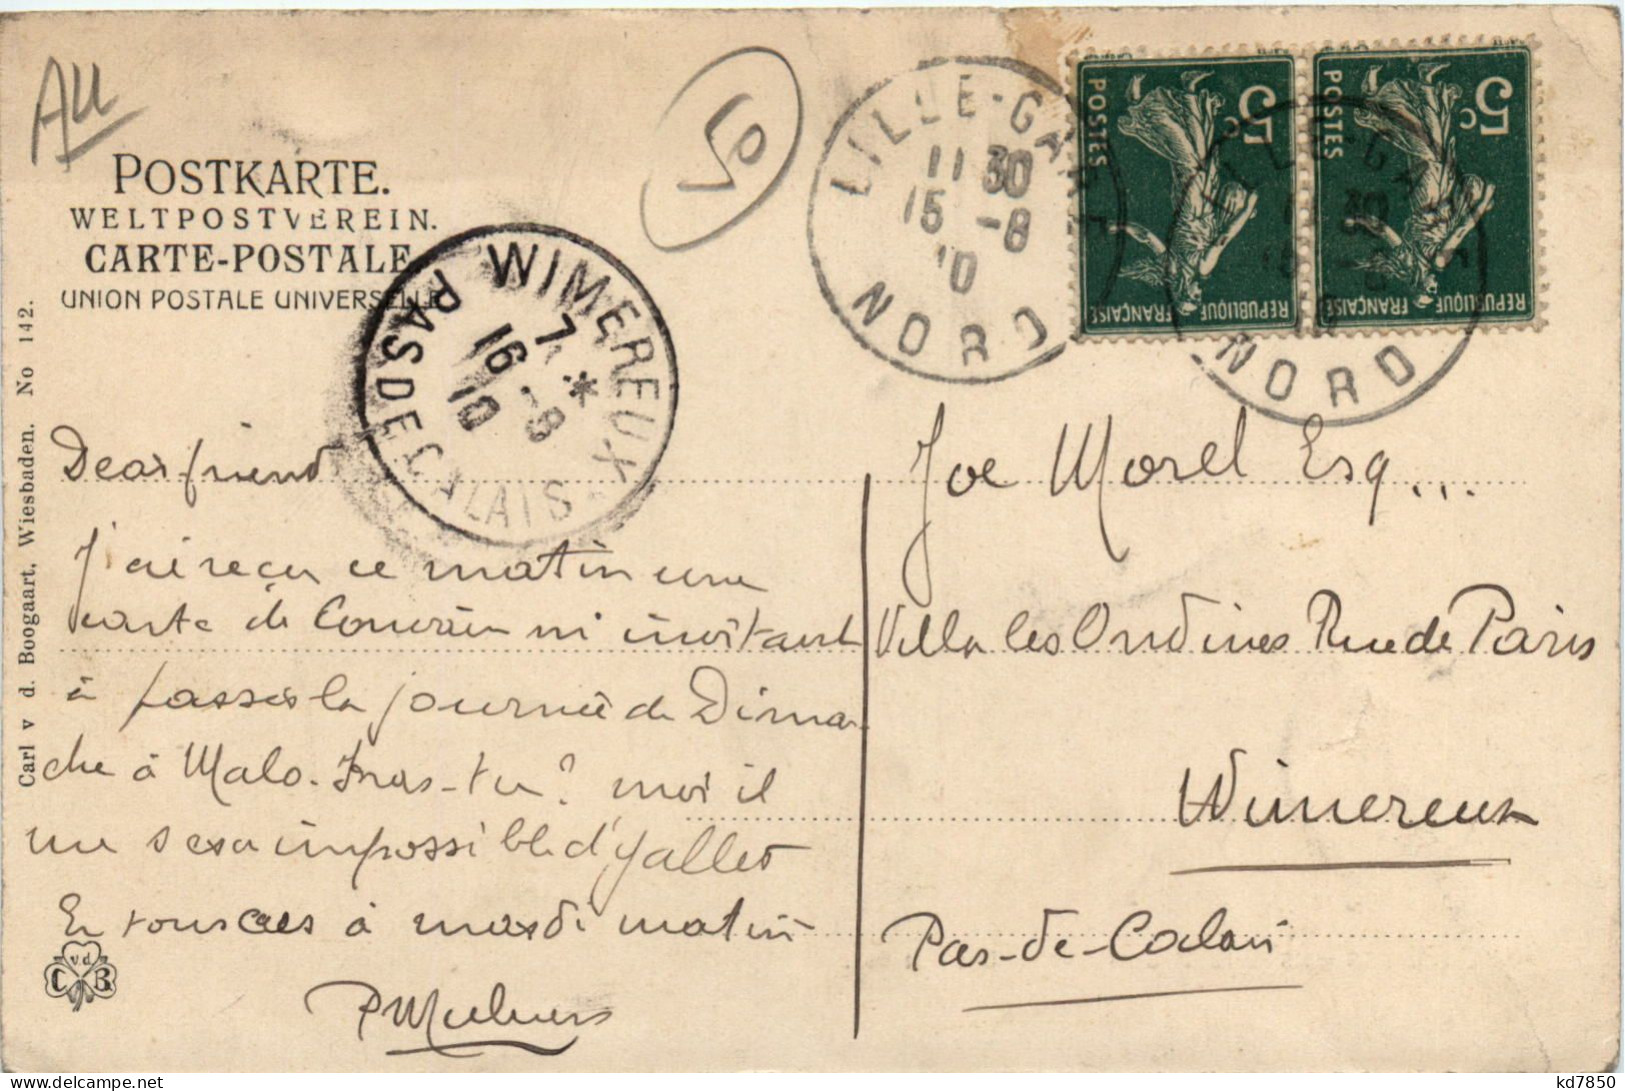 AU
POSTKARTE.
WELTPOSTVEREIN.
CARTE-POSTALE
UNION POSTALE UNIVERSELLE
Carl v d. Boogaart, Wiesbaden. No 142.
WIMEREUX
7 *
16 -8
10
PAS DE CALAIS
LILLE-GARE
11 30
15 -8
10
NORD
LILLE-GARE
30
NORD
5c
POSTES
REPUBLIQUE FRANÇAISE
5c
POSTES
REPUBLIQUE FRANÇAISE
Dear friend
J'ai reçu ce matin une
carte de m'invitant
à passer la journée de Diman-
che à Malo. Iras-tu? moi il
me sera impossible d'y aller
En tous cas à mardi matin
Joe Morel Esq...
Villa les Ondines Rue de Paris
Wimereux
Pas-de-Calais
C vd B
kd7850